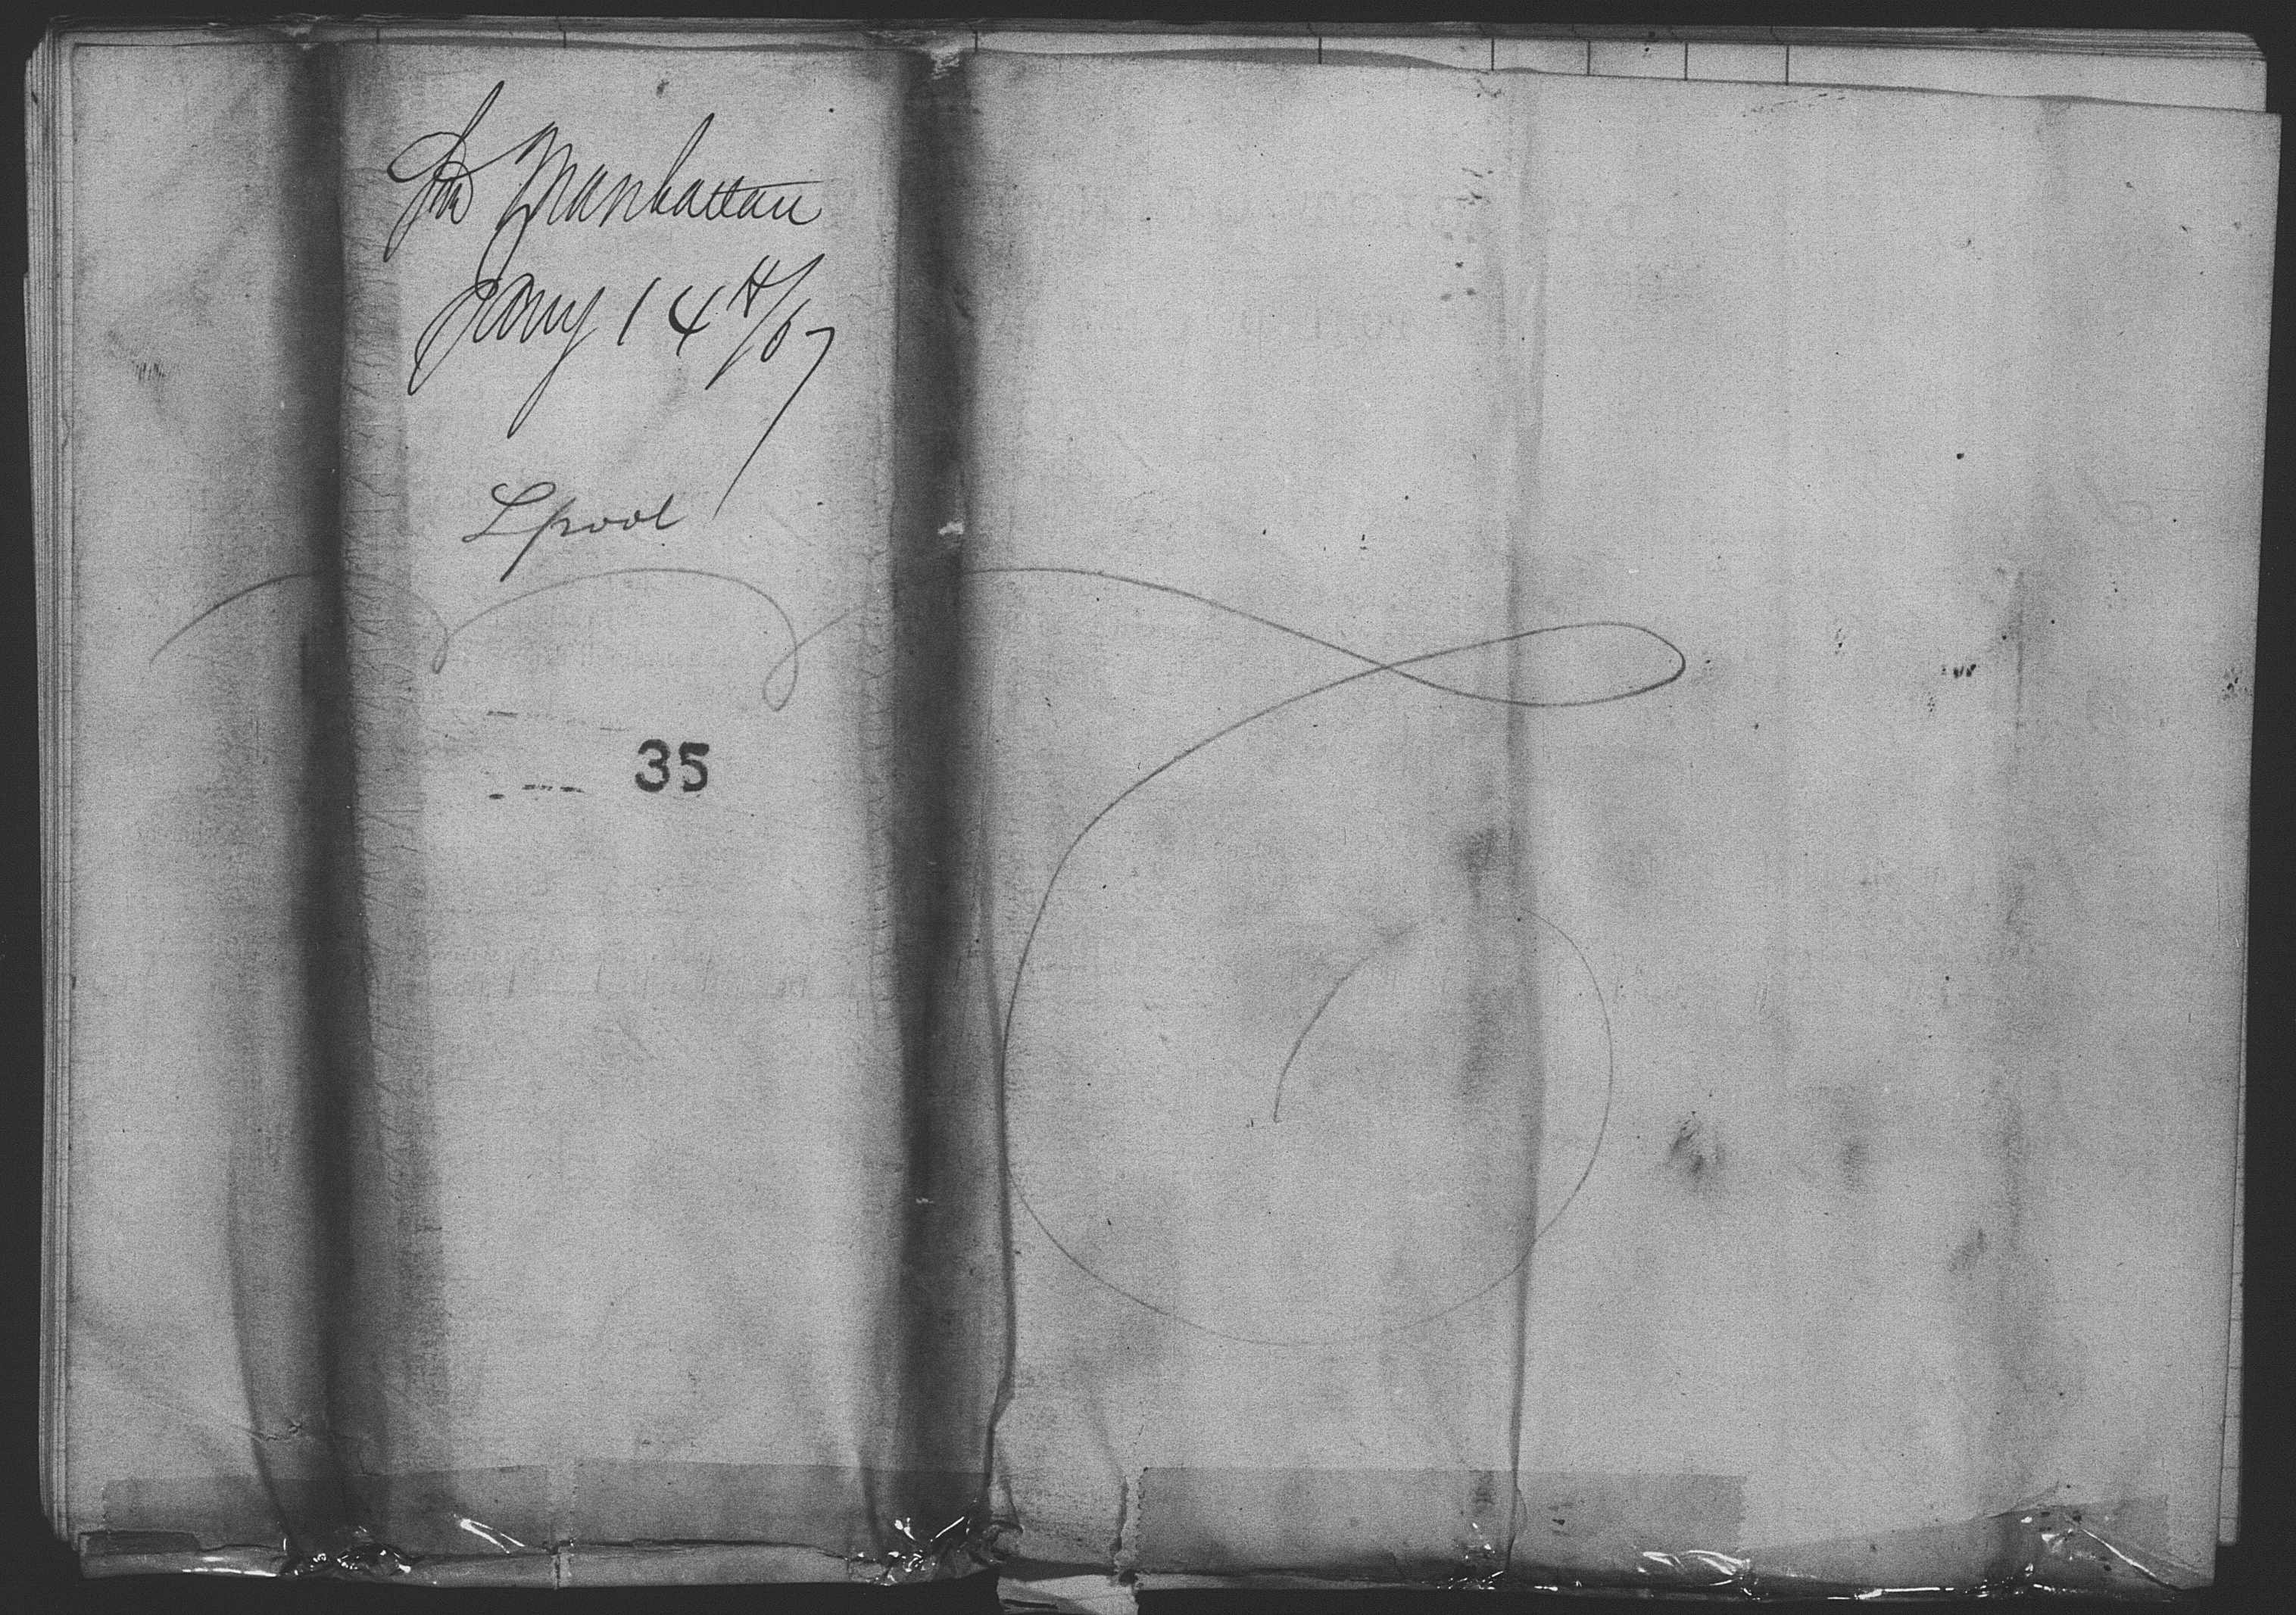 Str Manhattan
Jany 14th/67
Lpool
35